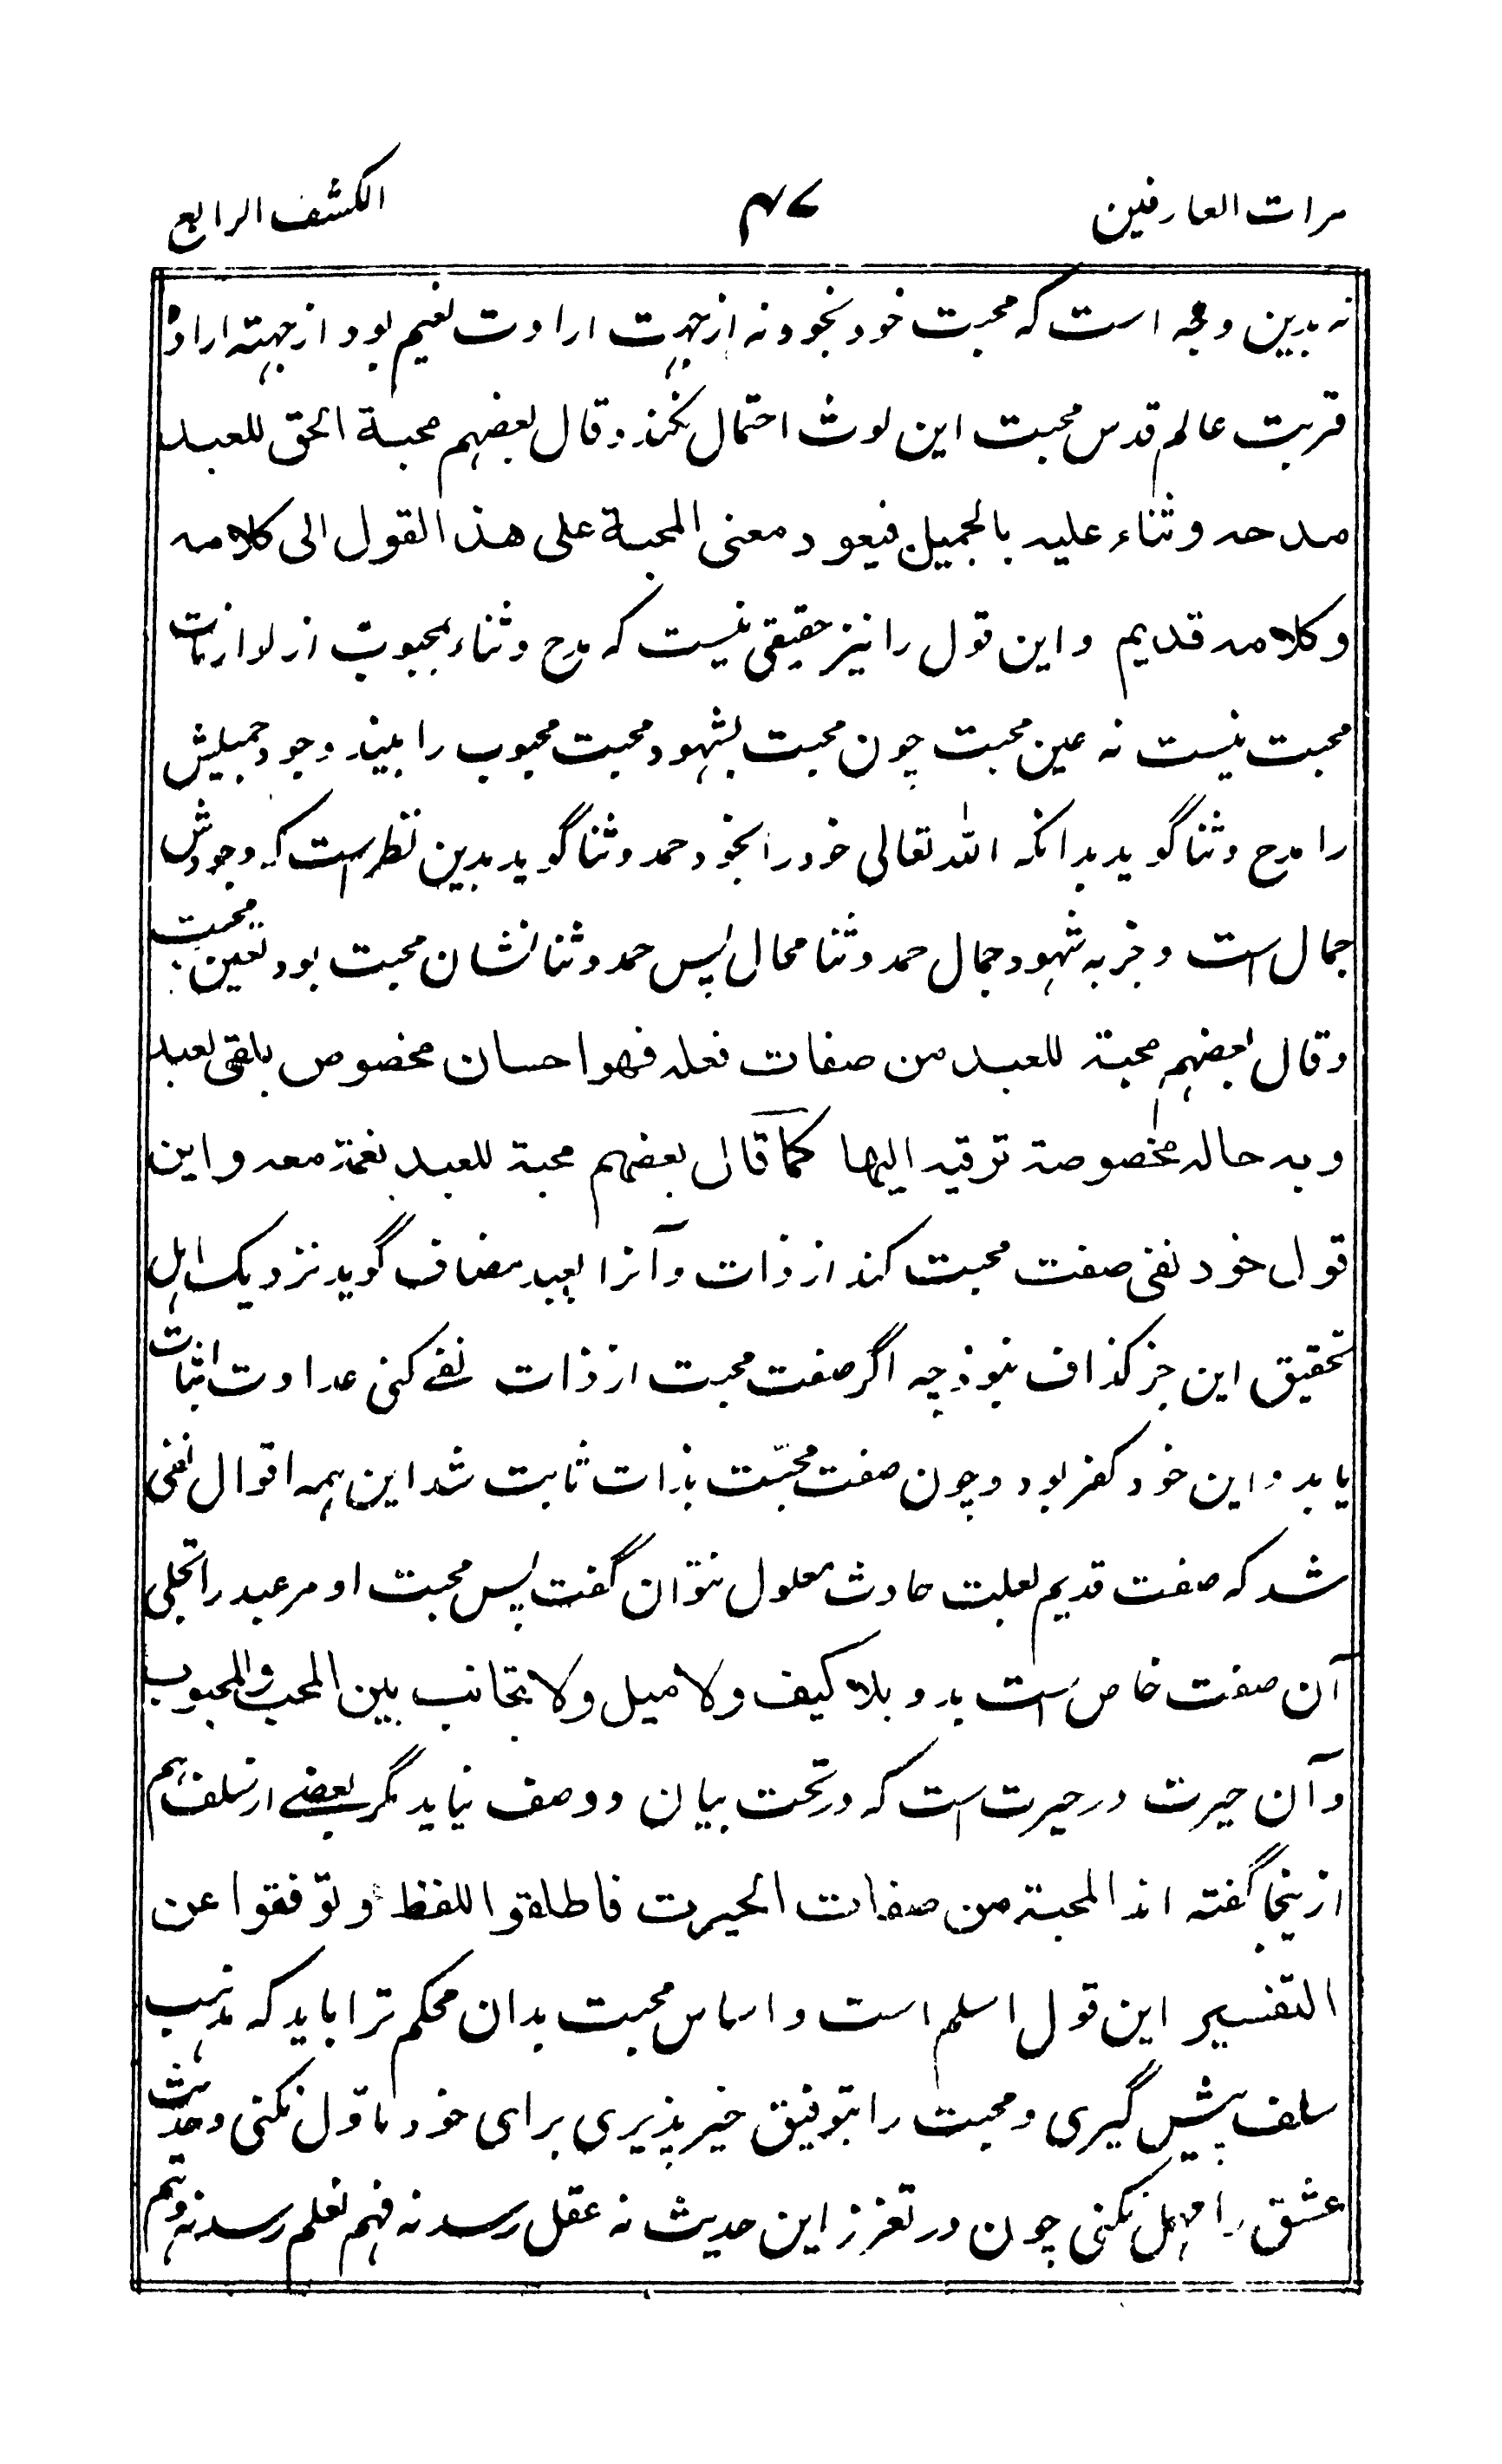 مرات العارفین ۴۷ الکشف الرابع
نه بدین وجه است که محبت خود بخود نه از جهت ارادت نعیم بود از جهته اراده
قربت عالم قدس محبت این لوث احتمال نکند وقال بعضهم محبة الحق للعبد
مدحه وثناء علیه بالجمیل فیعود معنی المحبة علی هذا القول الی کلامه
وکلامه قدیم واین قول را نیز حقیقی نیست که مدح وثناء محبوب از لوازمات
محبت نیست نه عین محبت چون محبت بشهود محبت محبوب را بیند وجود جمیلش
را مدح وثنا گوید بدانکه الله تعالی خود را بخود حمد وثنا گوید بدین نظر است که وجودش
جمال است وجز به شهود جمال حمد وثنا محال پس حمد وثنا نشان محبت بود نعین محبت
وقال بعضهم محبة للعبد من صفات فعله فهو احسان مخصوص یلقی لعبد
وبه حاله مخصوصة ترقیه الیها کما قال بعضهم محبة للعبد نعمة معه واین
قول خود نفی صفت محبت کند از ذات وآنرا بعبد مضاف گوید نزدیک اهل
تحقیق این جز گذاف نبود چه اگر صفت محبت از ذات نفے کنی عداوت اثبات
یابد واین خود کفر بود وچون صفت محبّت بذات ثابت شد این همه اقوال نفی
شد که صفت قدیم بعلت حادث معلول نتوان گفت پس محبت او مر عبد را تجلی
آن صفت خاص است بدو بلا کیف ولا میل ولا تجانب بین المحب والمحبوب
وآن حیرت در حیرت است که در تحت بیان ووصف نیاید مگر بعضے از سلف هم
ازینجا گفته اند المحبة من صفات الحیرت فاطلقوا اللفظ وتوقفوا عن
التفسیر این قول اسلم است واساس محبت بدان محکم ترا باید که مذهب
سلف پیش گیری ومحبت را بتوفیق خیر پذیری برای خود ماوّل نکنی وحدیث
عشق را مهمل نکنی چون در تعزز این حدیث نه عقل رسد نه فهم نعلم رسد نه وهم